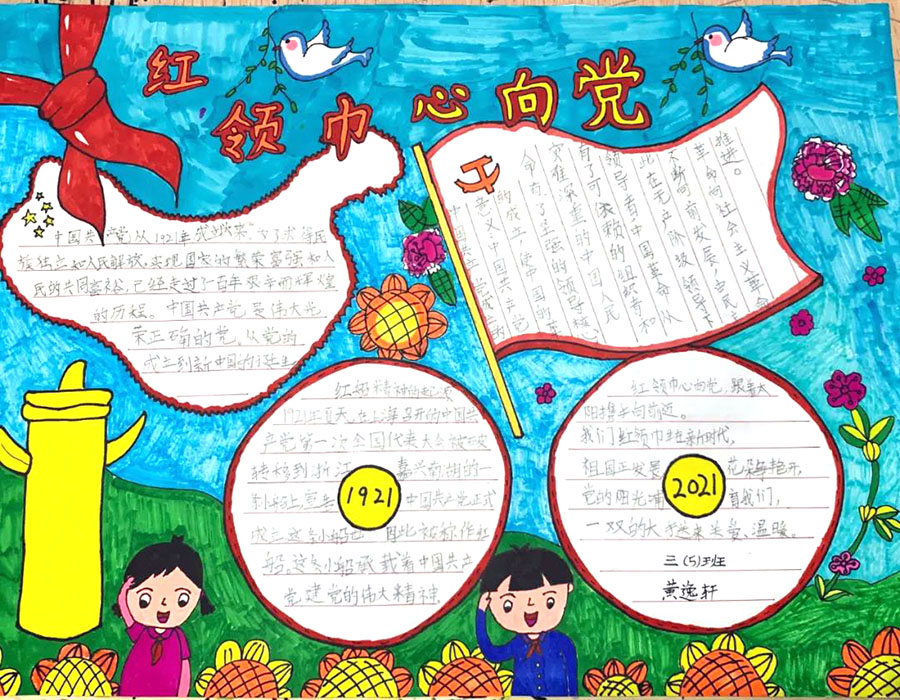 红领巾心向党
中国共产党从1921年成立以来,为了求得民
族独立和人民解放,实现国家的繁荣富强和人
民的共同富裕,已经走过了百年艰辛而辉煌
的历程。中国共产党是伟大光
荣正确的党。从党的
成立到新中国的
推进。
革命向社会主义革命
不断向前发展,由民主
此在无产阶级领导下
领导者中国革命从
有了可依赖的组织者和
灾难深重的中国人民
命有了坚强的领导核心
的成立,使中国的革
主义中国共产党
红船精神的起源
1921年夏天,在上海召开的中国共
产党第一次全国代表大会被迫
转移到浙江 嘉兴南湖的一
1921
船上宣告 中国共产党正式
成立这条小船也 因此被称作红
船。这条小船承载着中国共产
党建党的伟大精神
红领巾心向党,跟着太
阳撸手向前迈。
我们红领巾生在新时代,
祖国正发展 花朵每艳开,
2021
党的阳光 育我们,
一双的大手送来关爱、温暖。
三(5)班
黄逸轩